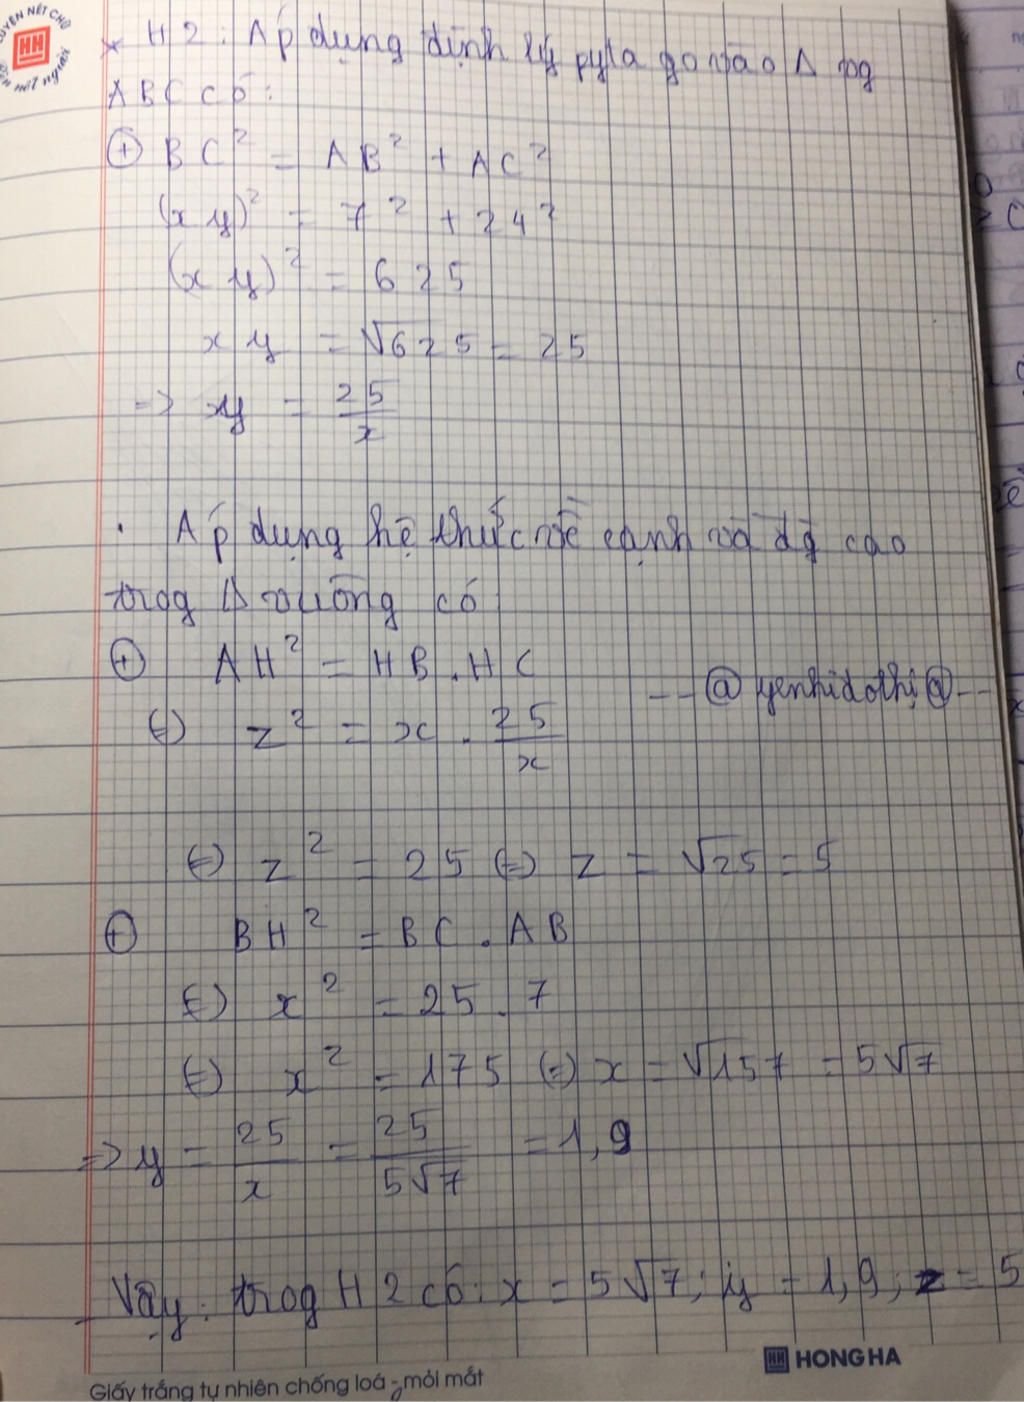 LUYỆN NÉT CHỮ
HH
rèn nết người
* H2: Áp dụng định lý pyta go vào Δ vog
ABC có:
⊕ BC² = AB² + AC²
(x y)² = 7² + 24²
(x y)² = 625
x y = √625 = 25
=> xy = 25/x
. Áp dụng hệ thức về cạnh và đg cao
trog Δ vuông có
⊕ AH² = HB . HC
--@yenhidothi@--
(=) z² = x . 25/x
(=) z² = 25 (=) z = √25 = 5
⊕ BH² = BC . AB
(=) x² = 25 . 7
(=) x² = 175 (=) x = √157 = 5√7
=> y = 25/x = 25/5√7 = 1,9
Vậy: trog H2 có: x = 5√7; y = 1,9; z = 5
HH HONG HA
Giấy trắng tự nhiên chống loá - mỏi mắt